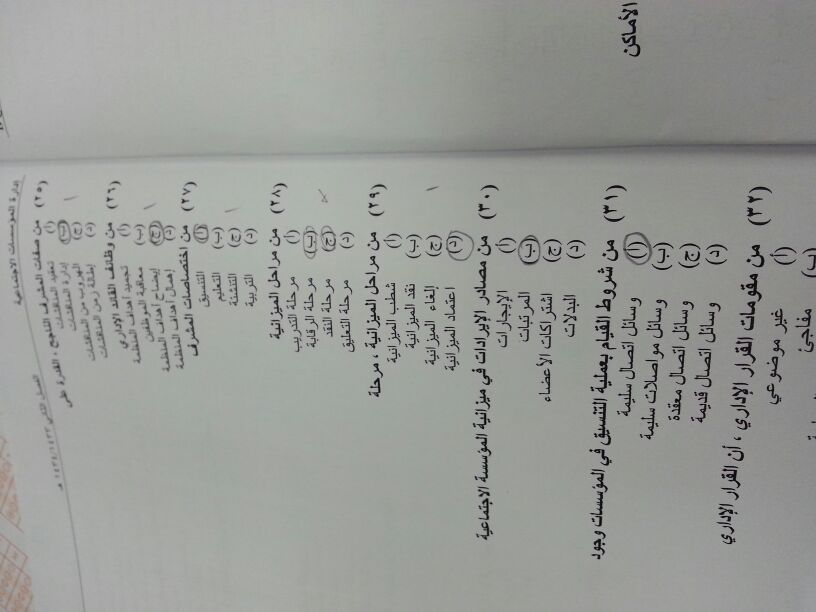 إدارة المؤسسات الاجتماعية
الفصل الثاني
(٢٥) من صفات المشرف الناجح ، القدرة على
(أ) تعقيد المناقشات
(ب) إدارة المناقشات
(ج) الهروب من المناقشات
(د) إطالة زمن المناقشات
(٢٦) من وظائف القائد الإداري
(أ) تجميد أهداف المنظمة
(ب) معاقبة الموظفين
(ج) إيضاح أهداف المنظمة
(د) إهمال أهداف المنظمة
(٢٧) من اختصاصات المشرف
(أ) التنسيق
(ب) التعليم
(ج) التنشئة
(د) التربية
(٢٨) من مراحل الميزانية
(أ) مرحلة التدريب
(ب) مرحلة الرقابة
(ج) مرحلة النقد
(د) مرحلة التعليق
(٢٩) من مراحل الميزانية ، مرحلة
(أ) شطب الميزانية
(ب) نقد الميزانية
(ج) إلغاء الميزانية
(د) اعتماد الميزانية
(٣٠) من مصادر الإيرادات في ميزانية المؤسسة الاجتماعية
(أ) الإيجارات
(ب) المرتبات
(ج) اشتراكات الأعضاء
(د) البدلات
(٣١) من شروط القيام بعملية التنسيق في المؤسسات وجود
(أ) وسائل اتصال سليمة
(ب) وسائل مواصلات سليمة
(ج) وسائل اتصال معقدة
(د) وسائل اتصال قديمة
(٣٢) من مقومات القرار الإداري ، أن القرار الإداري
(أ) غير موضوعي
(ب) مفاجئ
الأماكن